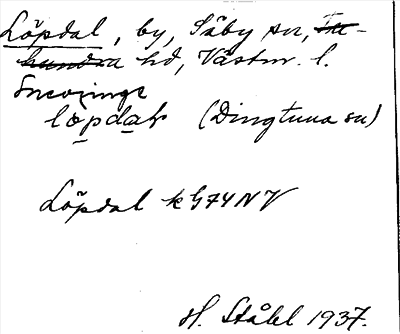 Löpdal, by, Säby sn, Tu-
hundra hd, Västm. l.
Snevringe
löpdaƚr (Dingtuna sn)
Löpdal k G74NV
H. Ståhl 1937.